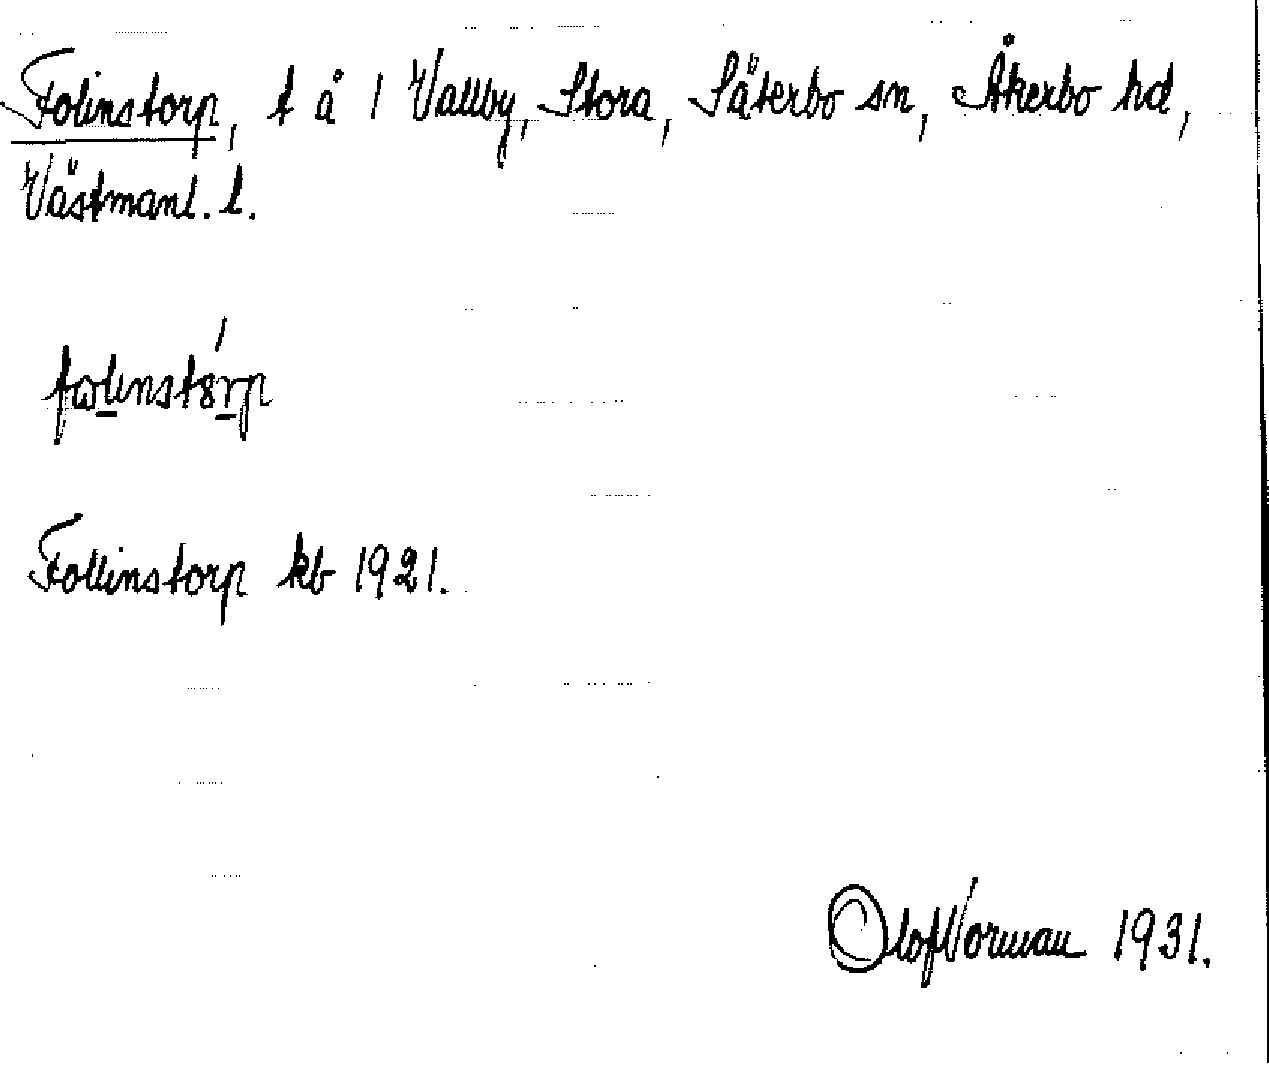 Folinstorp, t å 1 Vallby, Stora, Säterbo sn, Åkerbo hd,
Västmanl. l.
Follinstorp kb 1921.
Olof Norman 1931.